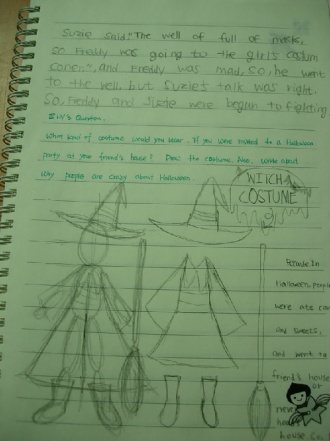 Suzie said, "The well of full of masks,
so Freddy was going to the girl's costum
coner.", and Freddy was mad, so, he went
to the well, but Suzie's talk was right.
So, Freddy and Suzie were began to fighting.
Question.
What kind of costume would you wear, If you were invited to a Halloween
party at your friend's house? Draw the costume. Also, write about
why people are crazy about Halloween.
WITCH
COSTUME
In
halloween, people
were ate can
and sweets,
and went to
friend's house
or
never
house